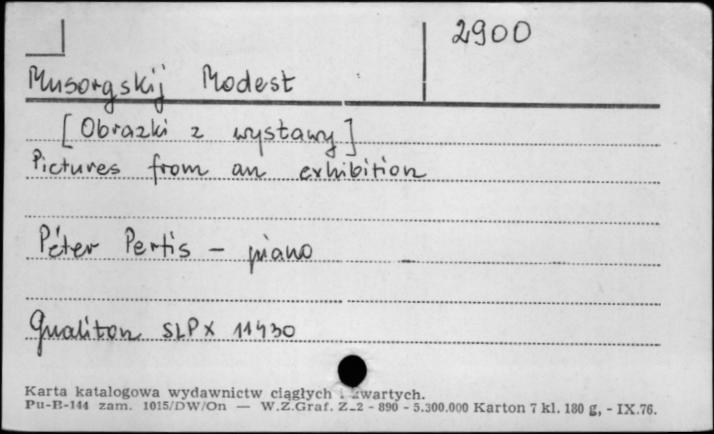 2900
Musorgskij Modest
[Obrazki z wystawy]
Pictures from an exhibition
Péter Pertis - piano
Qualiton SLPX 11430
Karta katalogowa wydawnictw ciągłych i zwartych.
Pu-B-144 zam. 1015/DW/On — W.Z.Graf. Z-2 - 890 - 5.300.000 Karton 7 kl. 180 g, - IX.76.